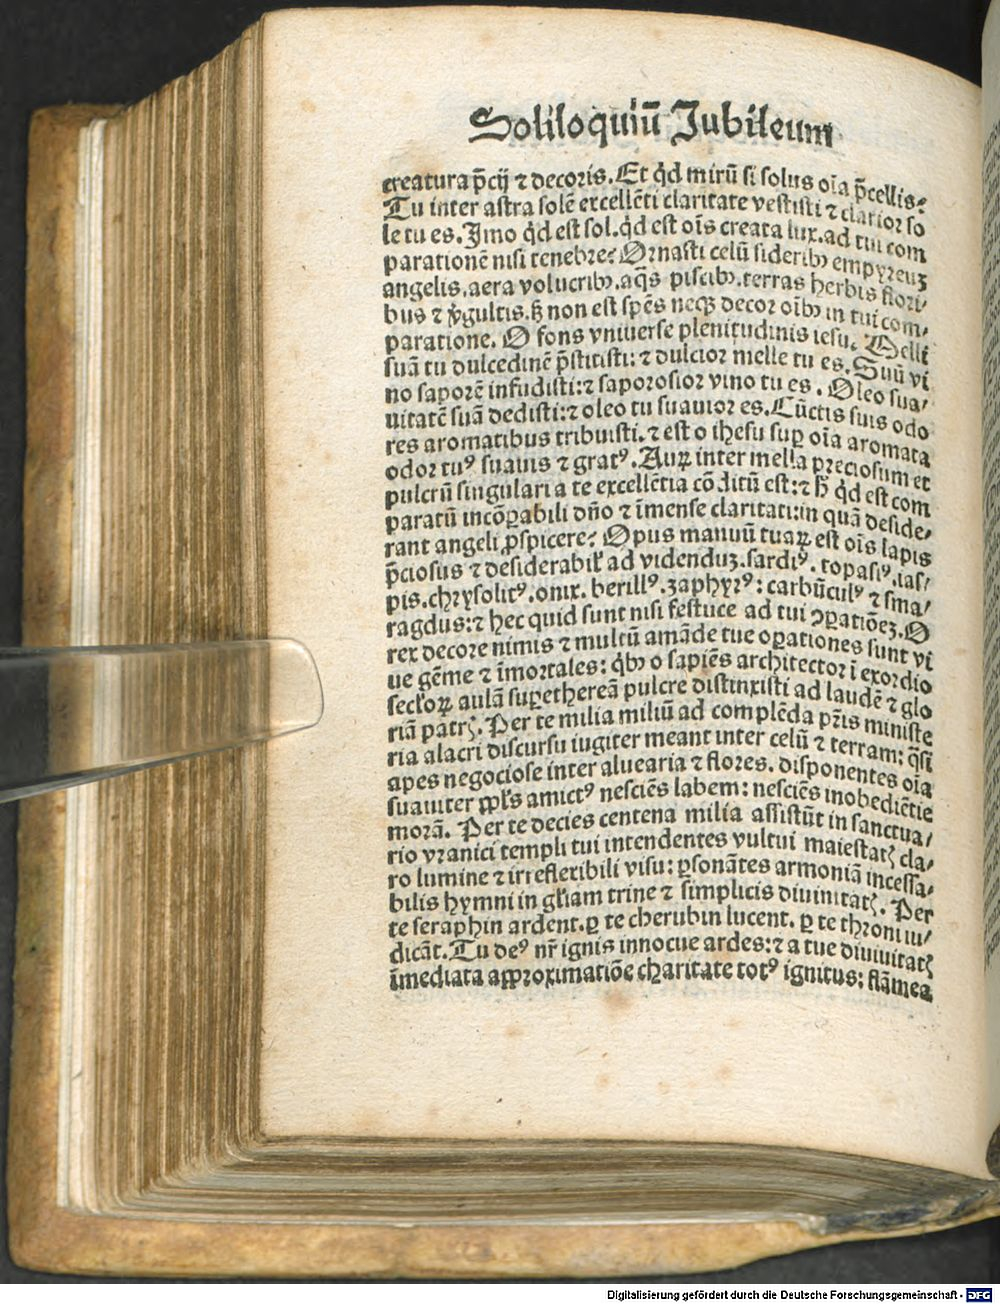 Soliloquiū Jubileum
creatura p̄cij ⁊ decoris. Et q̇d mirū si solus oīa p̄cellis:
Tu inter astra solē excellēti claritate vestisti ⁊ clarior so
le tu es. Imo q̇d est sol. q̇d est oīs creata lux. ad tui com
parationē nisi tenebre? Ornasti celū sideribꝰ empyreuʒ
angelis. aera volucribꝰ. aq̄s piscibꝰ. terras herbis flori/
bus ⁊ v̓gultis. sʒ non est spēs neqʒ decor oībꝰ in tui com/
paratione. O fons vniuerse plenitudinis iesu. Melli
suā tu dulcedinē p̄stitisti: ⁊ dulcior melle tu es. Suū vi
no saporē infudisti: ⁊ saporosior vino tu es. Oleo sua/
uitatē suā dedisti: ⁊ oleo tu suauior es. Cūctis suis odo
res aromatibus tribuisti. ⁊ est o ihesu suꝑ oīa aromata
odor tuꝰ suauis ⁊ gratꝰ. Auꝝ inter mella preciosum et
pulcrū singulari a te excellētia cōditū est: ⁊ h̄ q̇d est com
paratū incōꝑabili dn̄o ⁊ īmense claritati: in quā deside/
rant angeli ꝓspicere? Opus manuū tuaꝝ est oīs lapis
p̄ciosus ⁊ desiderabil̓ ad videnduʒ. sardiꝰ. topasiꝰ. ias/
pis. chrysolitꝰ. onix. berillꝰ. zaphyrꝰ: carbūculꝰ ⁊ sma/
ragdus: ⁊ hec quid sunt nisi festuce ad tui ꝯꝑatiōeʒ. O
rex decore nimis ⁊ multū amāde tue oꝑationes sunt vi
ue gēme ⁊ īmortales: q̇bꝰ o sapiēs architector ī exordio
secl̓oꝝ aulā suꝑethereā pulcre distinxisti ad laudē ⁊ glo
riā patrꝭ. Per te milia miliū ad complēda p̄ris ministe
ria alacri discursu iugiter meant inter celū ⁊ terram: q̄si
apes negociose inter aluearia ⁊ flores. disponentes oīa
suauiter ppl̓s amictꝰ nesciēs labem: nesciēs inobediētie
morā. Per te decies centena milia assistūt in sanctua/
rio vranici templi tui intendentes vultui maiestatꝭ cla/
ro lumine ⁊ irreflexibili visu: ꝑsonātes armoniā incessa/
bilis hymni in gl̓iam trine ⁊ simplicis diuinitatꝭ. Per
te seraphin ardent. ꝑ te cherubin lucent. ꝑ te throni iu/
dicāt. Tu deꝰ nr̄ ignis innocue ardes: ⁊ a tue diuinitatꝭ
īmediata approximatiōe charitate totꝰ ignitus: flāmea
Digitalisierung gefördert durch die Deutsche Forschungsgemeinschaft - DFG